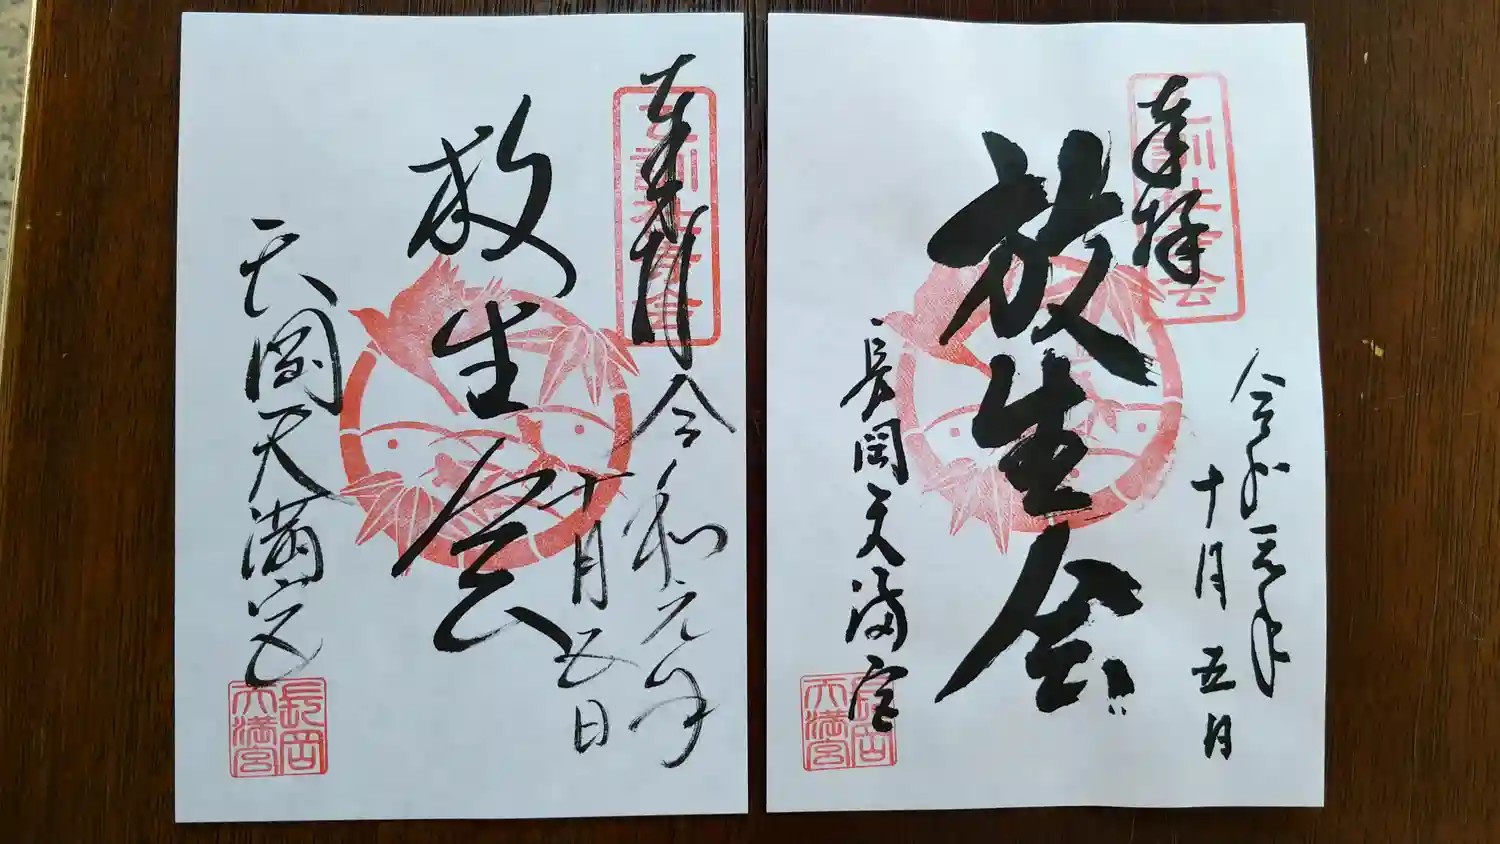 奉拝
令和元年
十月五日
放生会
長岡天満宮
長岡
天満宮
奉拝
令和元年
十月五日
放生会
長岡天満宮
長岡
天満宮